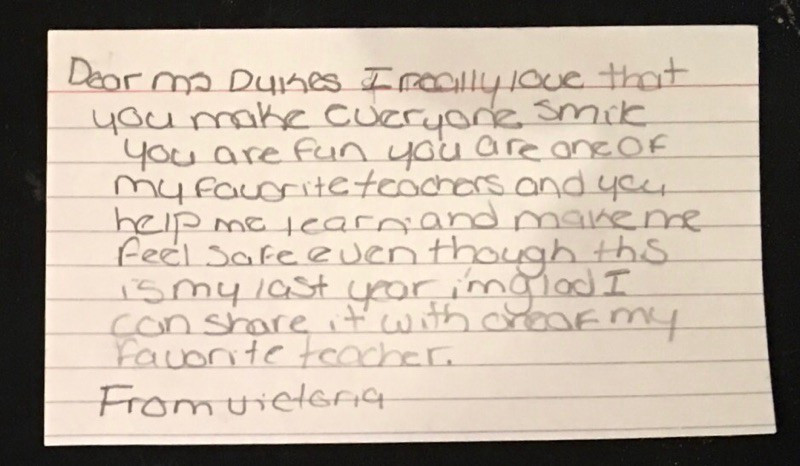 Dear ms Dukes I really love that
you make everyone smile
you are fun you are one of
my favorite teachers and you
help me learn and make me
feel safe even though ths
is my last year i'm glad I
can share it with oneof my
favorite teacher.
From victoria